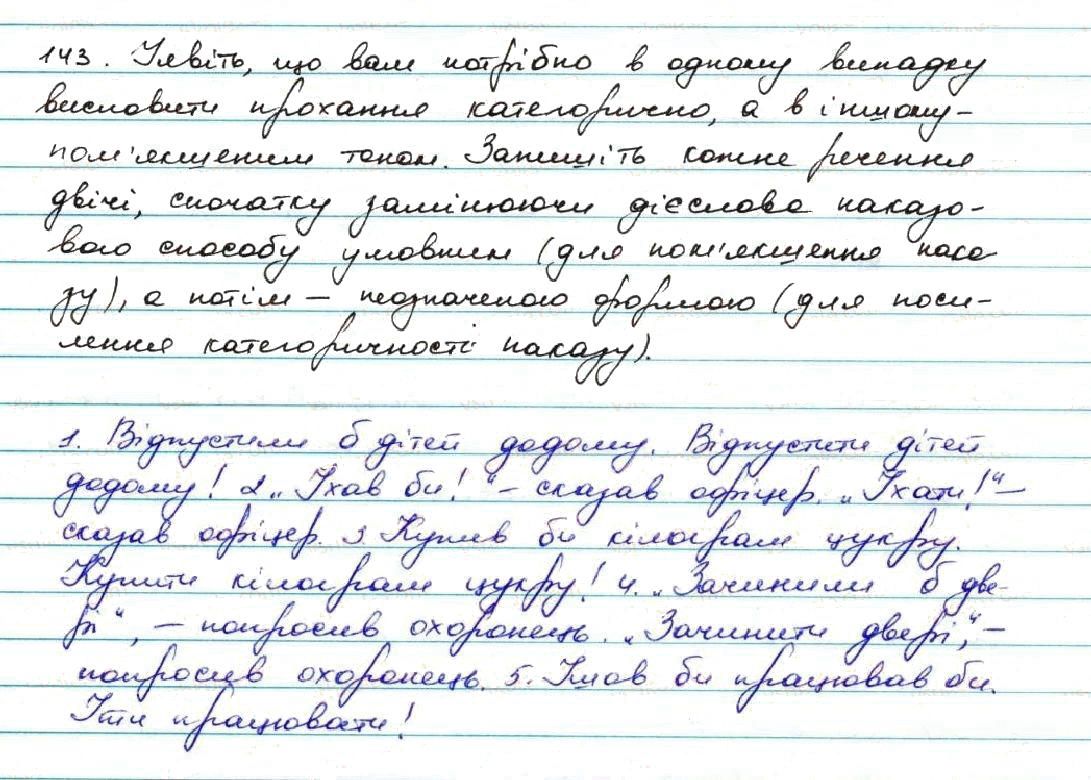 143. Уявіть, що вам потрібно в одному випадку
висловити прохання категорично, а в іншому -
пом'якшеним тоном. Запишіть кожне речення
двічі, спочатку замінюючи дієслова наказо-
вого способу умовним (для пом'якшення нака
зу), а потім – неозначеною формою (для поси-
лення категоричності наказу).
1. Відпустили б дітей додому. Відпустити дітей
додому! 2. „Їхав би!“ – сказав офіцер. „Їхати!“ –
сказав офіцер. 3 Купив би кілограм цукру.
Купити кілограм цукру! 4. „Зачинили б две-
рі“, – попросив охоронець. „Зачинити двері“, –
попросив охоронець. 5. Ішов би працював би.
Іти працювати!